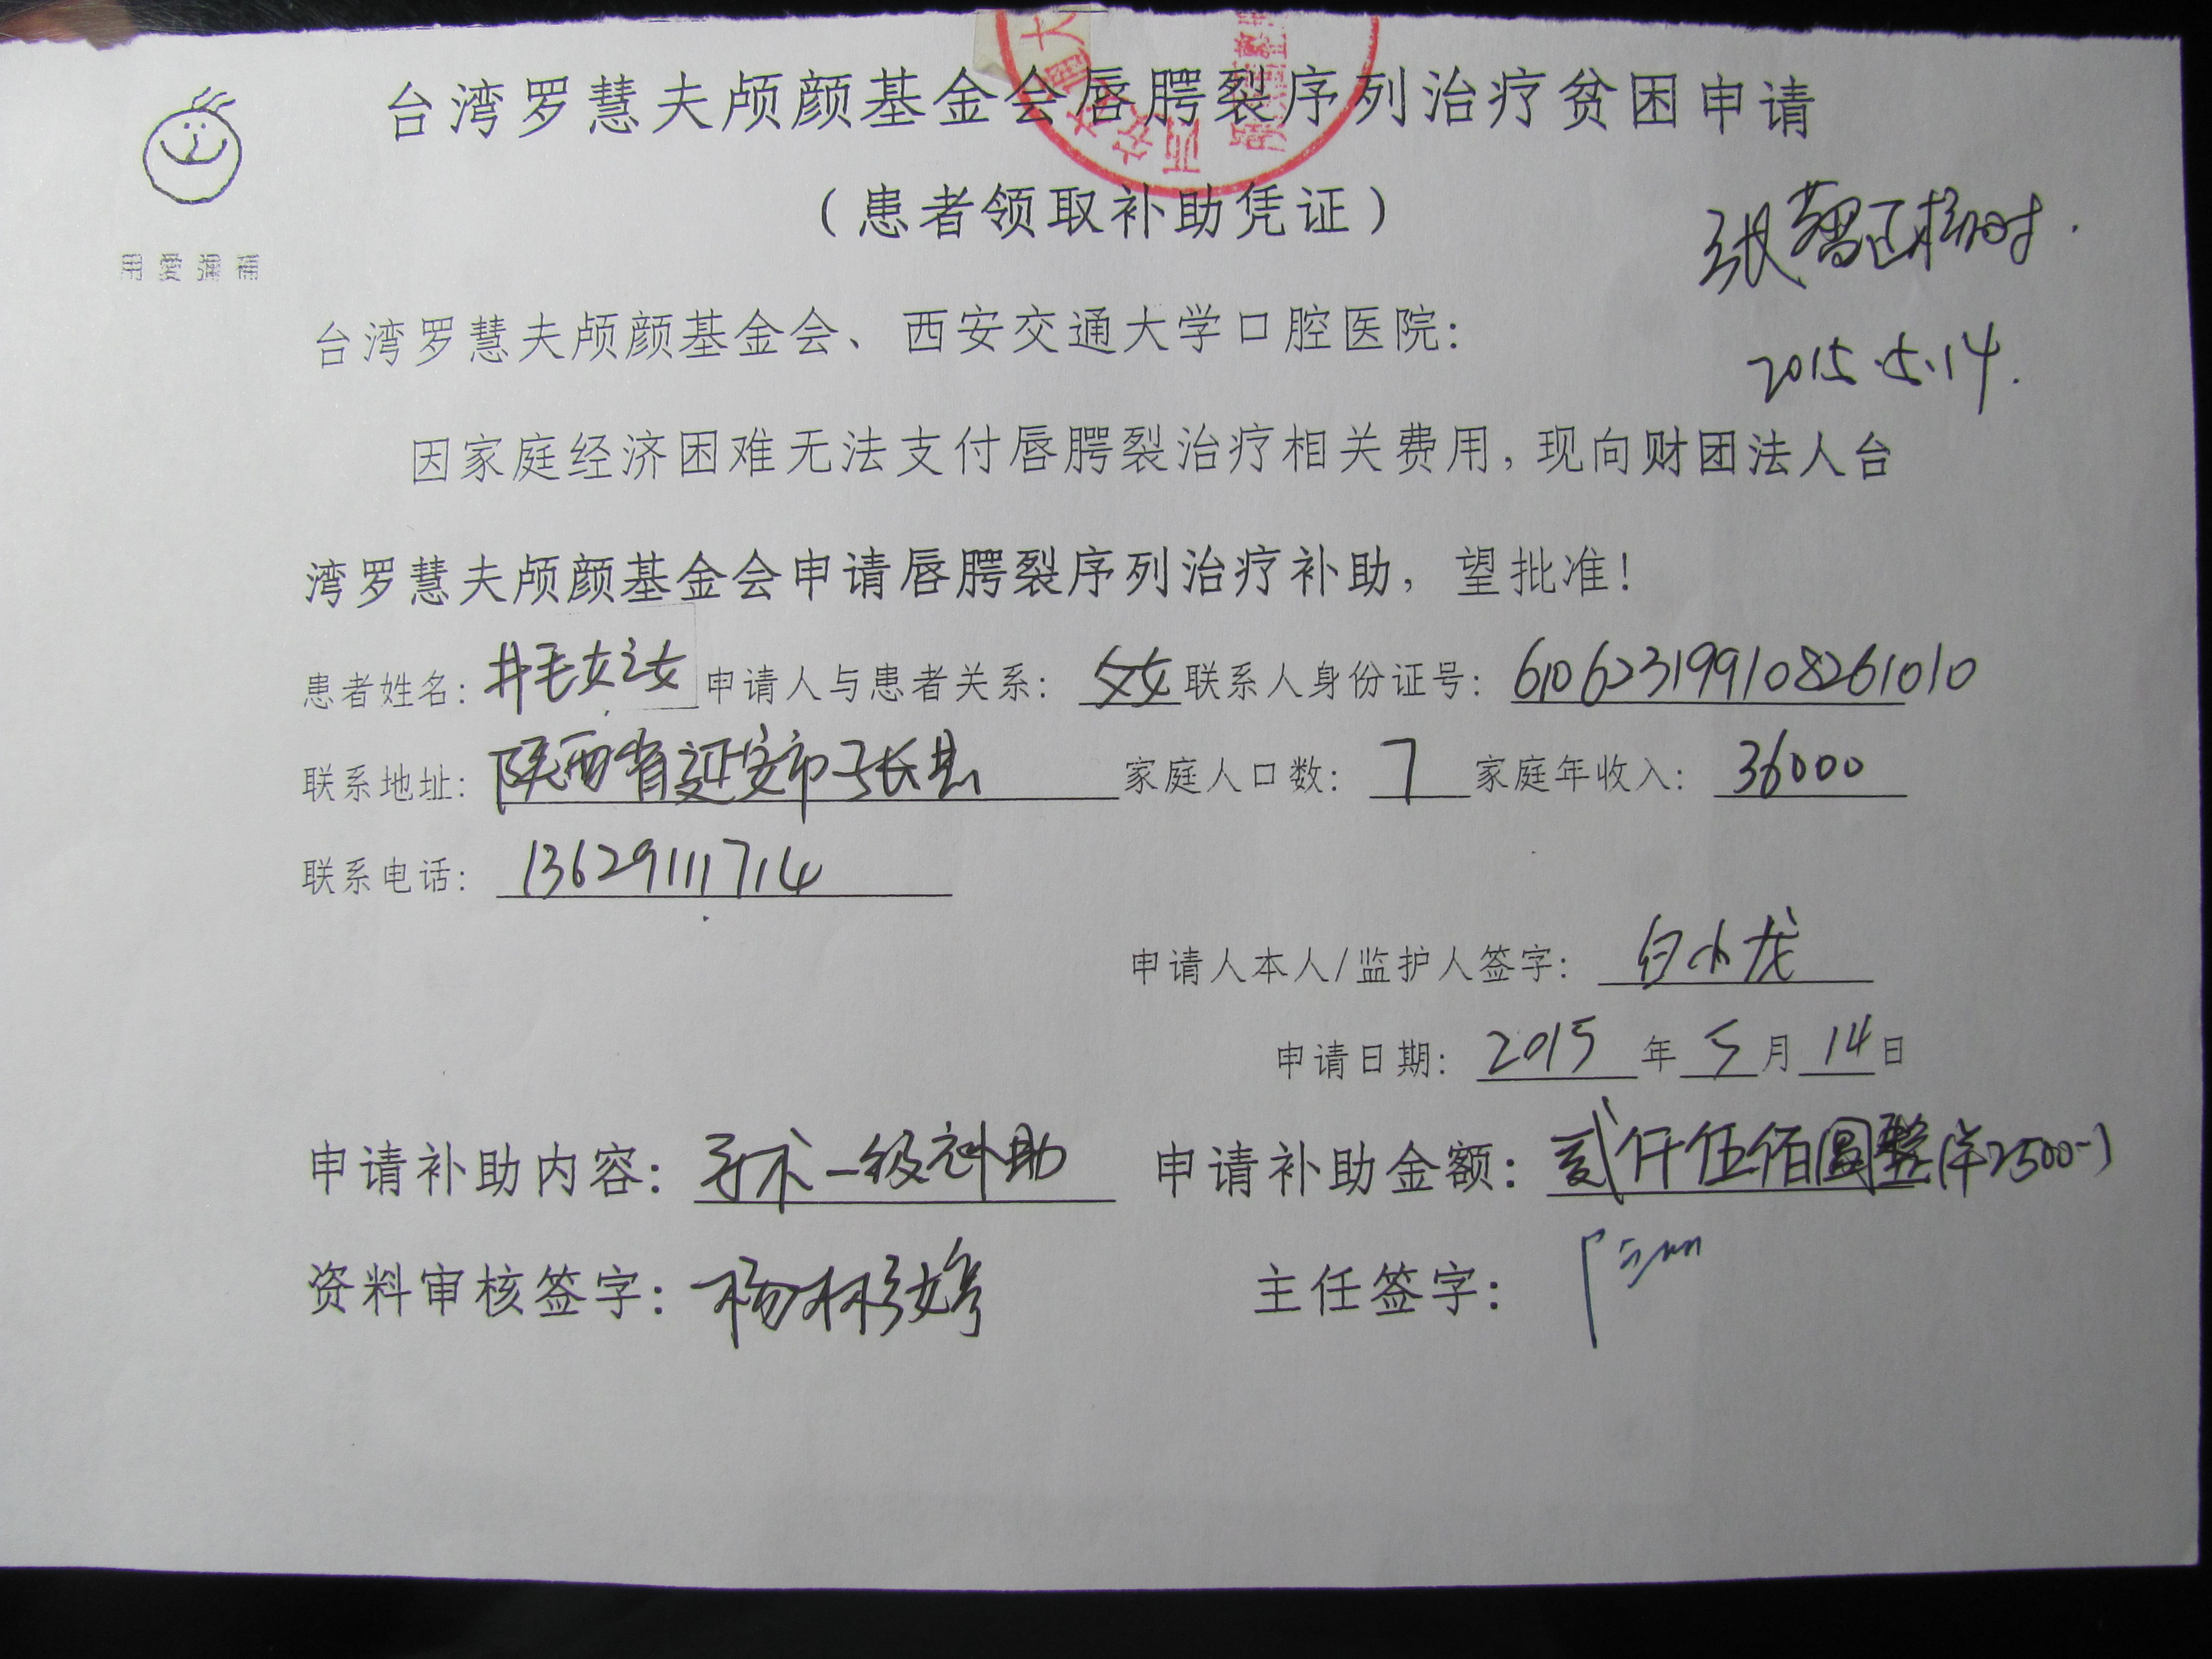 台湾罗慧夫颅颜基金会唇腭裂序列治疗贫困申请
（患者领取补助凭证）
用愛彌補
2015.5.14.
台湾罗慧夫颅颜基金会、西安交通大学口腔医院：
因家庭经济困难无法支付唇腭裂治疗相关费用，现向财团法人台
湾罗慧夫颅颜基金会申请唇腭裂序列治疗补助，望批准！
患者姓名：井毛女之女 申请人与患者关系：父女 联系人身份证号：610623199108261010
联系地址：陕西省延安市子长县 家庭人口数：7 家庭年收入：36000
联系电话：13629111714
申请人本人/监护人签字：白小龙
申请日期：2015年5月14日
申请补助内容：手术一级补助 申请补助金额：贰仟伍佰圆整(￥2500-)
资料审核签字：杨彬婷 主任签字：